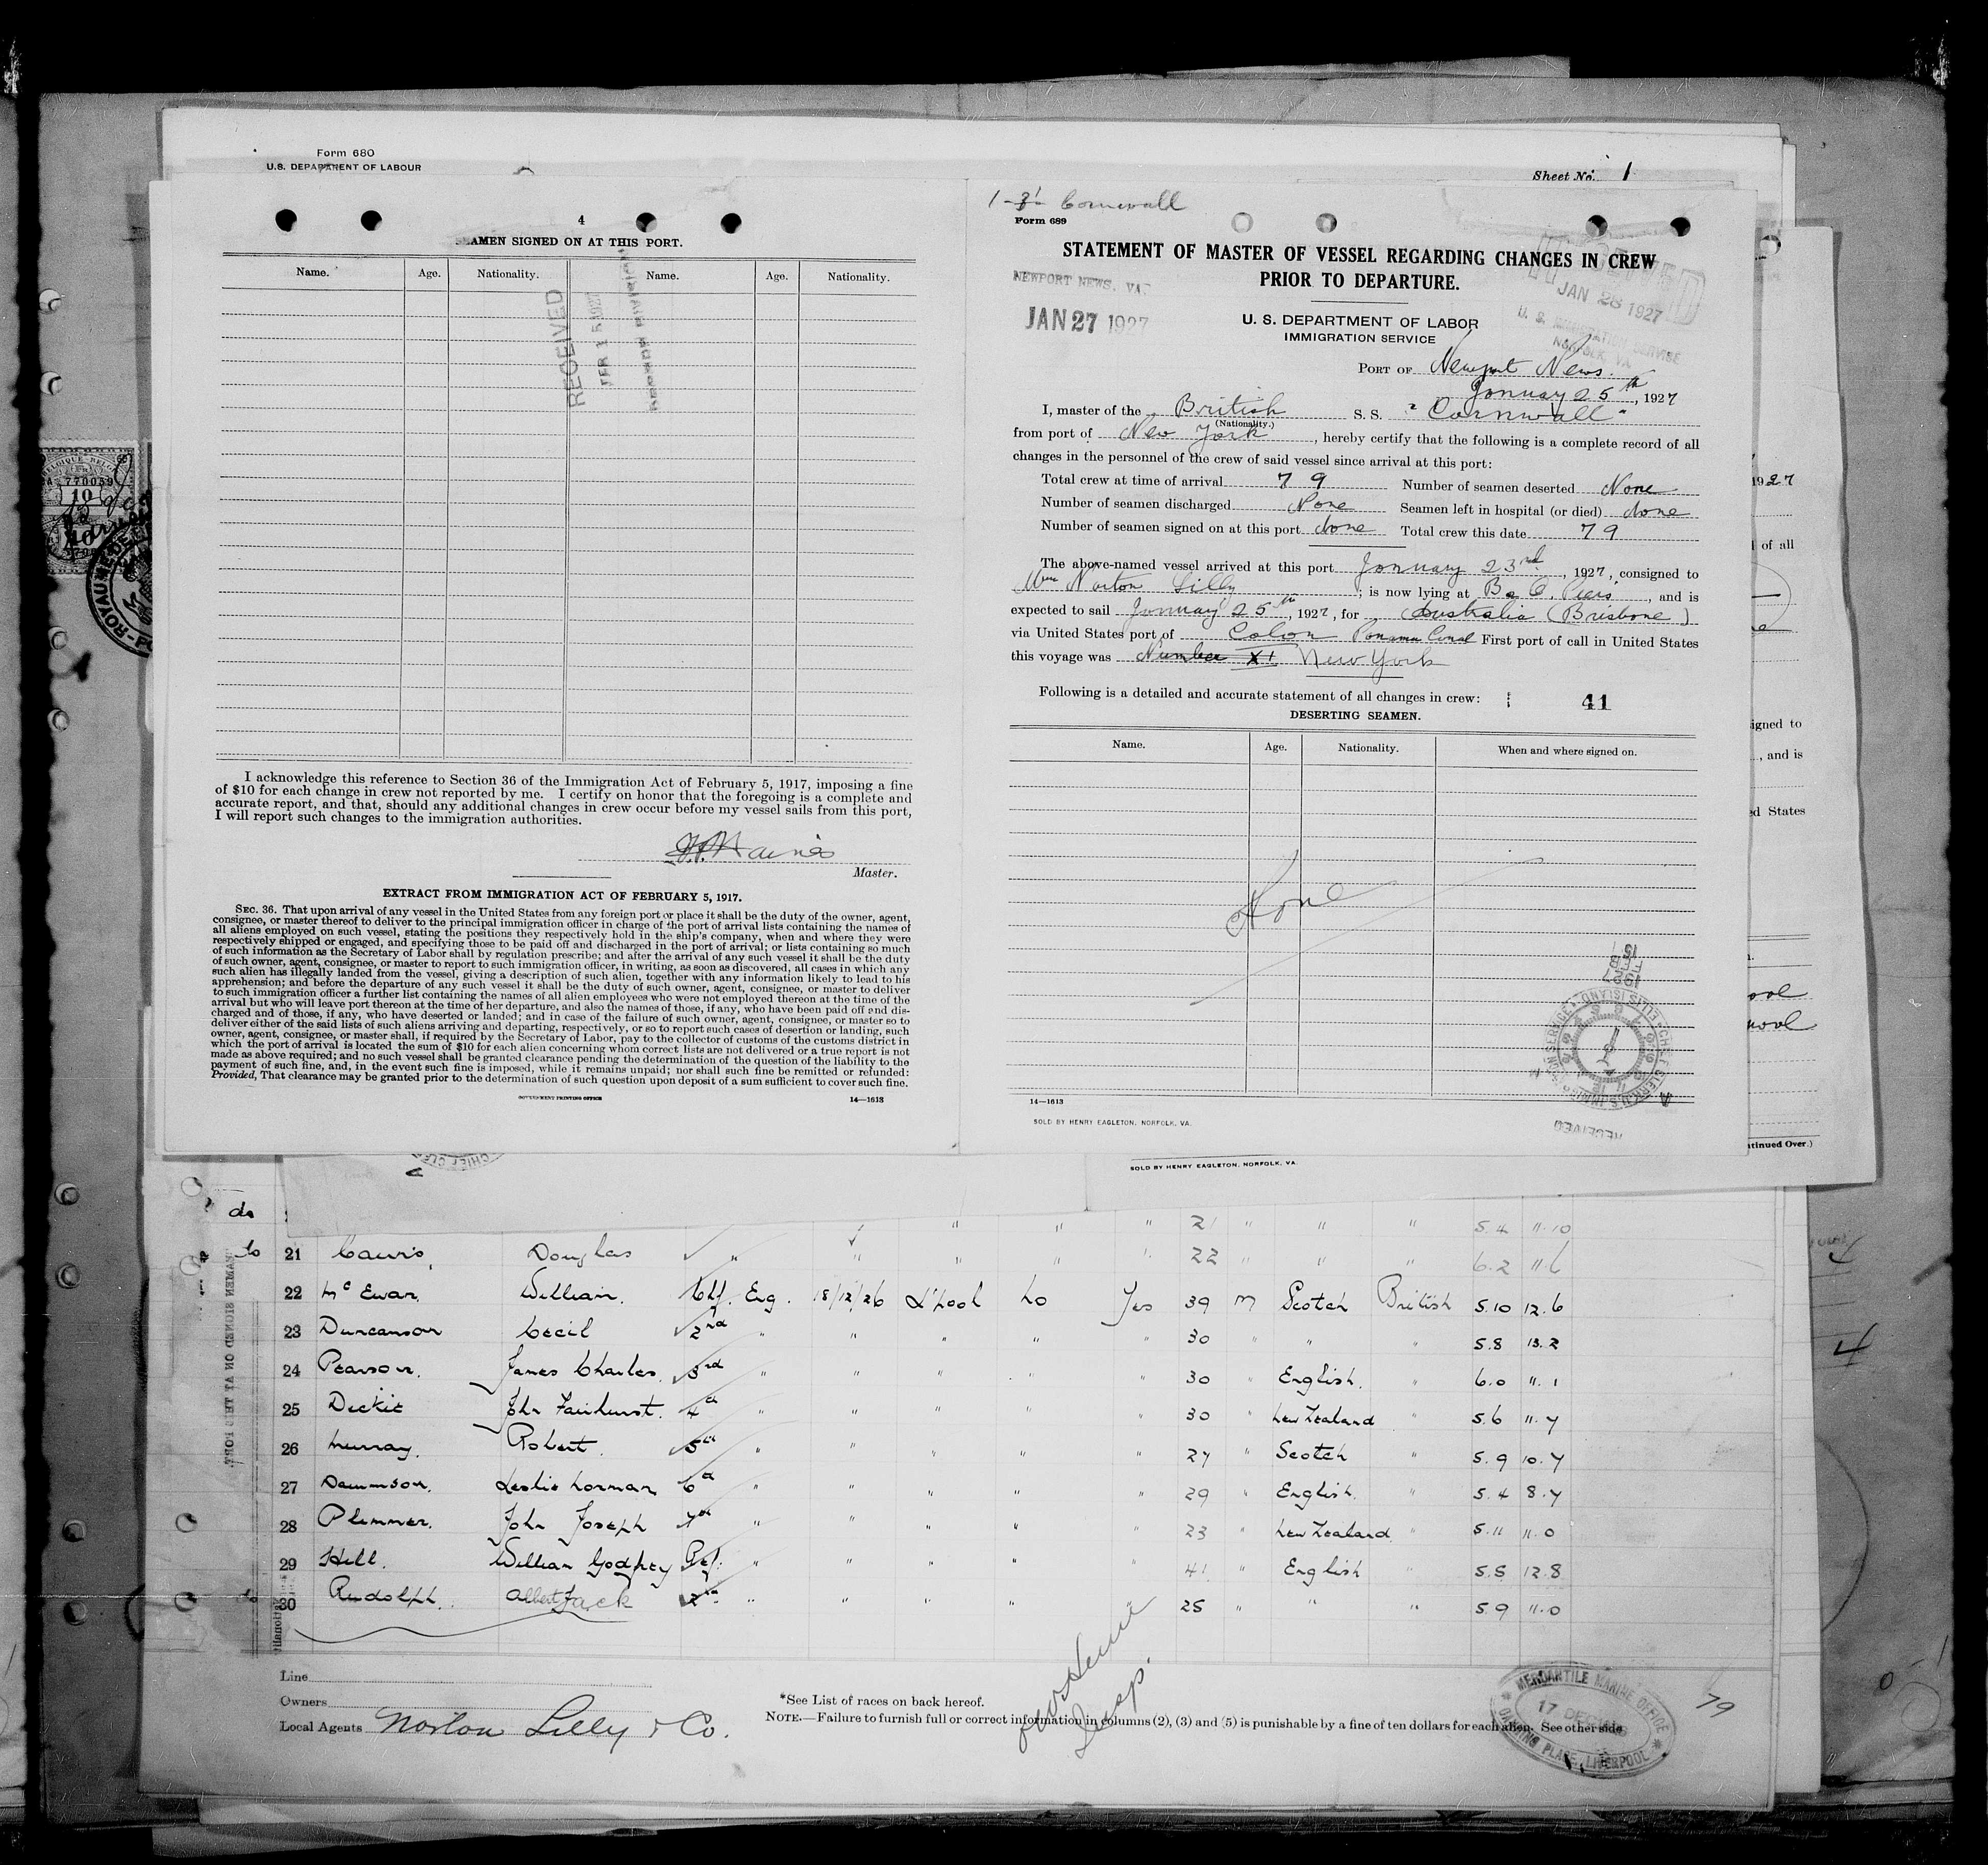 Form 680
U.S. DEPARTMENT OF LABOUR
Sheet No. 1
4
SEAMEN SIGNED ON AT THIS PORT.
Name. Age. Nationality. Name. Age. Nationality.
RECEIVED
FEB 15 1927
I acknowledge this reference to Section 36 of the Immigration Act of February 5, 1917, imposing a fine
of $10 for each change in crew not reported by me. I certify on honor that the foregoing is a complete and
accurate report, and that, should any additional changes in crew occur before my vessel sails from this port,
I will report such changes to the immigration authorities.
Haines
Master.
EXTRACT FROM IMMIGRATION ACT OF FEBRUARY 5, 1917.
SEC. 36. That upon arrival of any vessel in the United States from any foreign port or place it shall be the duty of the owner, agent,
consignee, or master thereof to deliver to the principal immigration officer in charge of the port of arrival lists containing the names of
all aliens employed on such vessel, stating the positions they respectively hold in the ship's company, when and where they were
respectively shipped or engaged, and specifying those to be paid off and discharged in the port of arrival; or lists containing so much
of such information as the Secretary of Labor shall by regulation prescribe; and after the arrival of any such vessel it shall be the duty
of such owner, agent, consignee, or master to report to such immigration officer, in writing, as soon as discovered, all cases in which any
such alien has illegally landed from the vessel, giving a description of such alien, together with any information likely to lead to his
apprehension; and before the departure of any such vessel it shall be the duty of such owner, agent, consignee, or master to deliver
to such immigration officer a further list containing the names of all alien employees who were not employed thereon at the time of the
arrival but who will leave port thereon at the time of her departure, and also the names of those, if any, who have been paid off and dis-
charged and of those, if any, who have deserted or landed; and in case of the failure of such owner, agent, consignee, or master so to
deliver either of the said lists of such aliens arriving and departing, respectively, or so to report such cases of desertion or landing, such
owner, agent, consignee, or master shall, if required by the Secretary of Labor, pay to the collector of customs of the customs district in
which the port of arrival is located the sum of $10 for each alien concerning whom correct lists are not delivered or a true report is not
made as above required; and no such vessel shall be granted clearance pending the determination of the question of the liability to the
payment of such fine, and, in the event such fine is imposed, while it remains unpaid; nor shall such fine be remitted or refunded:
Provided, That clearance may be granted prior to the determination of such question upon deposit of a sum sufficient to cover such fine.
GOVERNMENT PRINTING OFFICE 14—1613
Cornwall
Form 689
STATEMENT OF MASTER OF VESSEL REGARDING CHANGES IN CREW
PRIOR TO DEPARTURE.
NEWPORT NEWS, VA.
JAN 27 1927
JAN 28 1927
U. S. IMMIGRATION SERVICE
NORFOLK, VA.
U. S. DEPARTMENT OF LABOR
IMMIGRATION SERVICE
PORT OF Newport News.
January 25th, 1927
I, master of the British S. S. "Cornwall"
(Nationality.)
from port of New York, hereby certify that the following is a complete record of all
changes in the personnel of the crew of said vessel since arrival at this port:
Total crew at time of arrival 79 Number of seamen deserted None
Number of seamen discharged None Seamen left in hospital (or died) None
Number of seamen signed on at this port None Total crew this date 79
The above-named vessel arrived at this port January 23rd, 1927, consigned to
Norton Lilly; is now lying at B & O. Piers, and is
expected to sail January 25th, 1927, for Australia (Brisbane)
via United States port of Colon Panama Canal First port of call in United States
this voyage was Number XI New York
Following is a detailed and accurate statement of all changes in crew: 41
DESERTING SEAMEN.
Name. Age. Nationality. When and where signed on.
None
14—1613
SOLD BY HENRY EAGLETON, NORFOLK, VA.
RECEIVED
SOLD BY HENRY EAGLETON, NORFOLK, VA.
1927
of all
signed to
, and is
ed States
tinued Over.)
do " " " 21 " " " 5.4 11.10
do 21 Douglas " " " " " 22 " " " 6.2 11.6
22 McEwan. William. Chf. Eng. 18/12/26 L'pool No Yes 39 M Scotch British 5.10 12.6
23 Duncanson Cecil 2nd " " " " " 30 " " " 5.8 13.2
24 Pearson. James Charles. 3rd " " " " " 30 " English. " 6.0 11.1
25 Dickie John Fairhurst. 4th " " " " " 30 " New Zealand " 5.6 11.7
26 Murray. Robert. 5th " " " " " 27 " Scotch " 5.9 10.7
27 Leslie Norman 6th " " " " " 29 " English. " 5.4 8.7
28 Plimmer. John Joseph 7th " " " " " 23 " New Zealand " 5.11 11.0
29 Hill. William Godfrey Ref. " " " " " 41 " English " 5.5 12.8
30 Rudolph. Albert Jack 2nd " " " " " 25 " " " 5.9 11.0
Line
Owners
Local Agents Norton Lilly & Co.
*See List of races on back hereof.
NOTE.—Failure to furnish full or correct information in columns (2), (3) and (5) is punishable by a fine of ten dollars for each alien. See other side
MERCANTILE MARINE OFFICE
17 DEC 1926
CANNING PLACE, LIVERPOOL
79